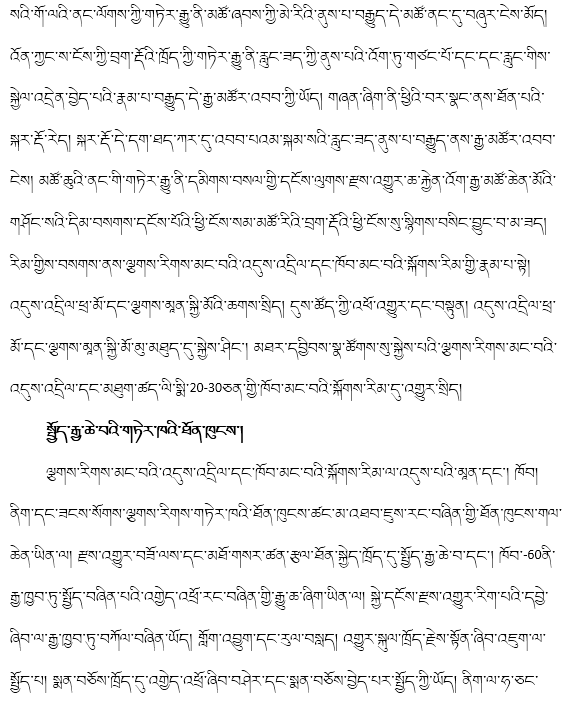 སའི་གོ་ལའི་ནང་ལོགས་ཀྱི་གཏེར་རྒྱུ་ནི་མཚོ་ཞབས་ཀྱི་མེ་རིའི་ནུས་པ་བརྒྱུད་དེ་མཚོ་ནང་དུ་བཞུར་ངེས་མོད།
འོན་ཀྱང་ས་ངོས་ཀྱི་བྲག་རྡོའི་ཁྲོད་ཀྱི་གཏེར་རྒྱུ་ནི་རླུང་ཟད་ཀྱི་ནུས་པའི་འོག་ཏུ་གཙང་པོ་དང་དང་རླུང་གིས་
སྐྱེལ་འདྲེན་བྱེད་པའི་རྣམ་པ་བརྒྱུད་དེ་རྒྱ་མཚོར་འབབ་ཀྱི་ཡོད། གཞན་ཞིག་ནི་ཕྱིའི་བར་སྣང་ནས་ཐོན་པའི་
སྐར་རྡོ་རེད། སྐར་རྡོ་དེ་དག་ཐད་ཀར་དུ་འབབ་པའམ་སྐམ་སའི་རླུང་ཟད་ནུས་པ་བརྒྱུད་ནས་རྒྱ་མཚོར་འབབ་
ངེས། མཚོ་ཆུའི་ནང་གི་གཏེར་རྒྱུ་ནི་དམིགས་བསལ་གྱི་དངོས་ལུགས་རྫས་འགྱུར་ཆ་རྐྱེན་འོག་རྒྱ་མཚོ་ཆེན་མོའི་
གཤོང་སའི་དྲིམ་བསགས་དངོས་པོའི་ཕྱི་ངོས་སམ་མཚོ་རིའི་བྲག་རྡོའི་ཕྱི་ངོས་སུ་སྙིགས་བསིང་བྱུང་བ་མ་ཟད།
རིམ་གྱིས་བསགས་ནས་ལྕགས་རིགས་མང་བའི་འདུས་འདྲིལ་དང་ཁོབ་མང་བའི་སྐོགས་རིམ་གྱི་རྣམ་པ་སྟེ།
འདུས་འདྲིལ་ཕྲ་མོ་དང་ལྕགས་མཱན་སྐྱི་མོའི་ཆགས་སྲིད། དུས་ཚོད་ཀྱི་འཕོ་འགྱུར་དང་བསྟུན། འདུས་འདྲིལ་ཕྲ་
མོ་དང་ལྕགས་མཱན་སྐྱི་མོ་མུ་མཐུད་དུ་སྐྱེས་ཤིང་། མཐར་དབྱིབས་སྣ་ཚོགས་སུ་སྐྱེས་པའི་ལྕགས་རིགས་མང་བའི་
འདུས་འདྲིལ་དང་མཐུག་ཚད་ལི་སྨི་20-30ཅན་གྱི་ཁོབ་མང་བའི་སྐོགས་རིམ་དུ་འགྱུར་སྲིད།
སྤྱོད་རྒྱ་ཆེ་བའི་གཏེར་ཁའི་ཐོན་ཁུངས་།
ལྕགས་རིགས་མང་བའི་འདུས་འདྲིལ་དང་ཁོབ་མང་བའི་སྐོགས་རིམ་ལ་འདུས་པའི་མཱན་དང་། ཁོབ།
ནིག་དང་ཟངས་སོགས་ལྕགས་རིགས་གཏེར་ཁའི་ཐོན་ཁུངས་ཚང་མ་འཐབ་ཇུས་རང་བཞིན་གྱི་ཐོན་ཁུངས་གལ་
ཆེན་ཡིན་ལ། རྫས་འགྱུར་བཟོ་ལས་དང་མཐོ་གསར་ཚན་རྩལ་ཐོན་སྐྱེད་ཁྲོད་དུ་སྤྱོད་རྒྱ་ཆེ་བ་དང་། ཁོབ་-60ནི་
རྒྱ་ཁྱབ་ཏུ་སྤྱོད་བཞིན་པའི་འགྱེད་འཕྲོ་རང་བཞིན་གྱི་རྒྱུ་ཆ་ཞིག་ཡིན་ལ། སྐྱེ་དངོས་རྫས་འགྱུར་རིག་པའི་དབྱེ་
ཞིབ་ལ་རྒྱ་ཁྱབ་ཏུ་བཀོལ་བཞིན་ཡོད། གློག་འབྱུག་དང་རུལ་བསླད། འགྱུར་སྐུལ་ཁྲོད་རྗེས་སྟོན་ཞིབ་འཇུག་ལ་
སྤྱོད་པ། སྨན་བཅོས་ཁྲོད་དུ་འགྱེད་འཕྲོ་ཞིབ་བཤེར་དང་སྨན་བཅོས་བྱེད་པར་སྤྱོད་ཀྱི་ཡོད། ནིག་ལ་ཧ་ཅང་